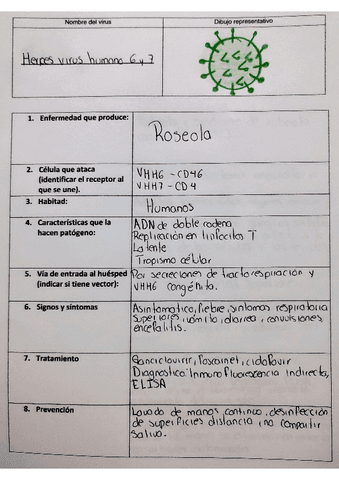 Nombre del virus
Dibujo representativo
Herpes virus humano 6 y 7
1. Enfermedad que produce:
Roseola
2. Célula que ataca
(identificar el receptor al
que se une).
VHH6 - CD46
VHH7 - CD4
3. Habitad:
Humanos
4. Características que la
hacen patógeno:
ADN de doble cadena
Replicación en linfocitos T
Latente
Tropismo celular
5. Vía de entrada al huésped
(indicar si tiene vector):
Por secreciones de tracto respiración y
VHH6 congénita.
6. Signos y síntomas
Asintomatica, fiebre, sintomas respiratoria
superiores, vómito, diarrea, convulsiones
encefalitis.
7. Tratamiento
Ganciclovirir, Foscarnet, cidofovir
Diagnostico Inmunofluorescencia indirecta,
ELISA
8. Prevención
Lavado de manos, continuo, desinfección
de superficies distancia, no compartir
saliva.